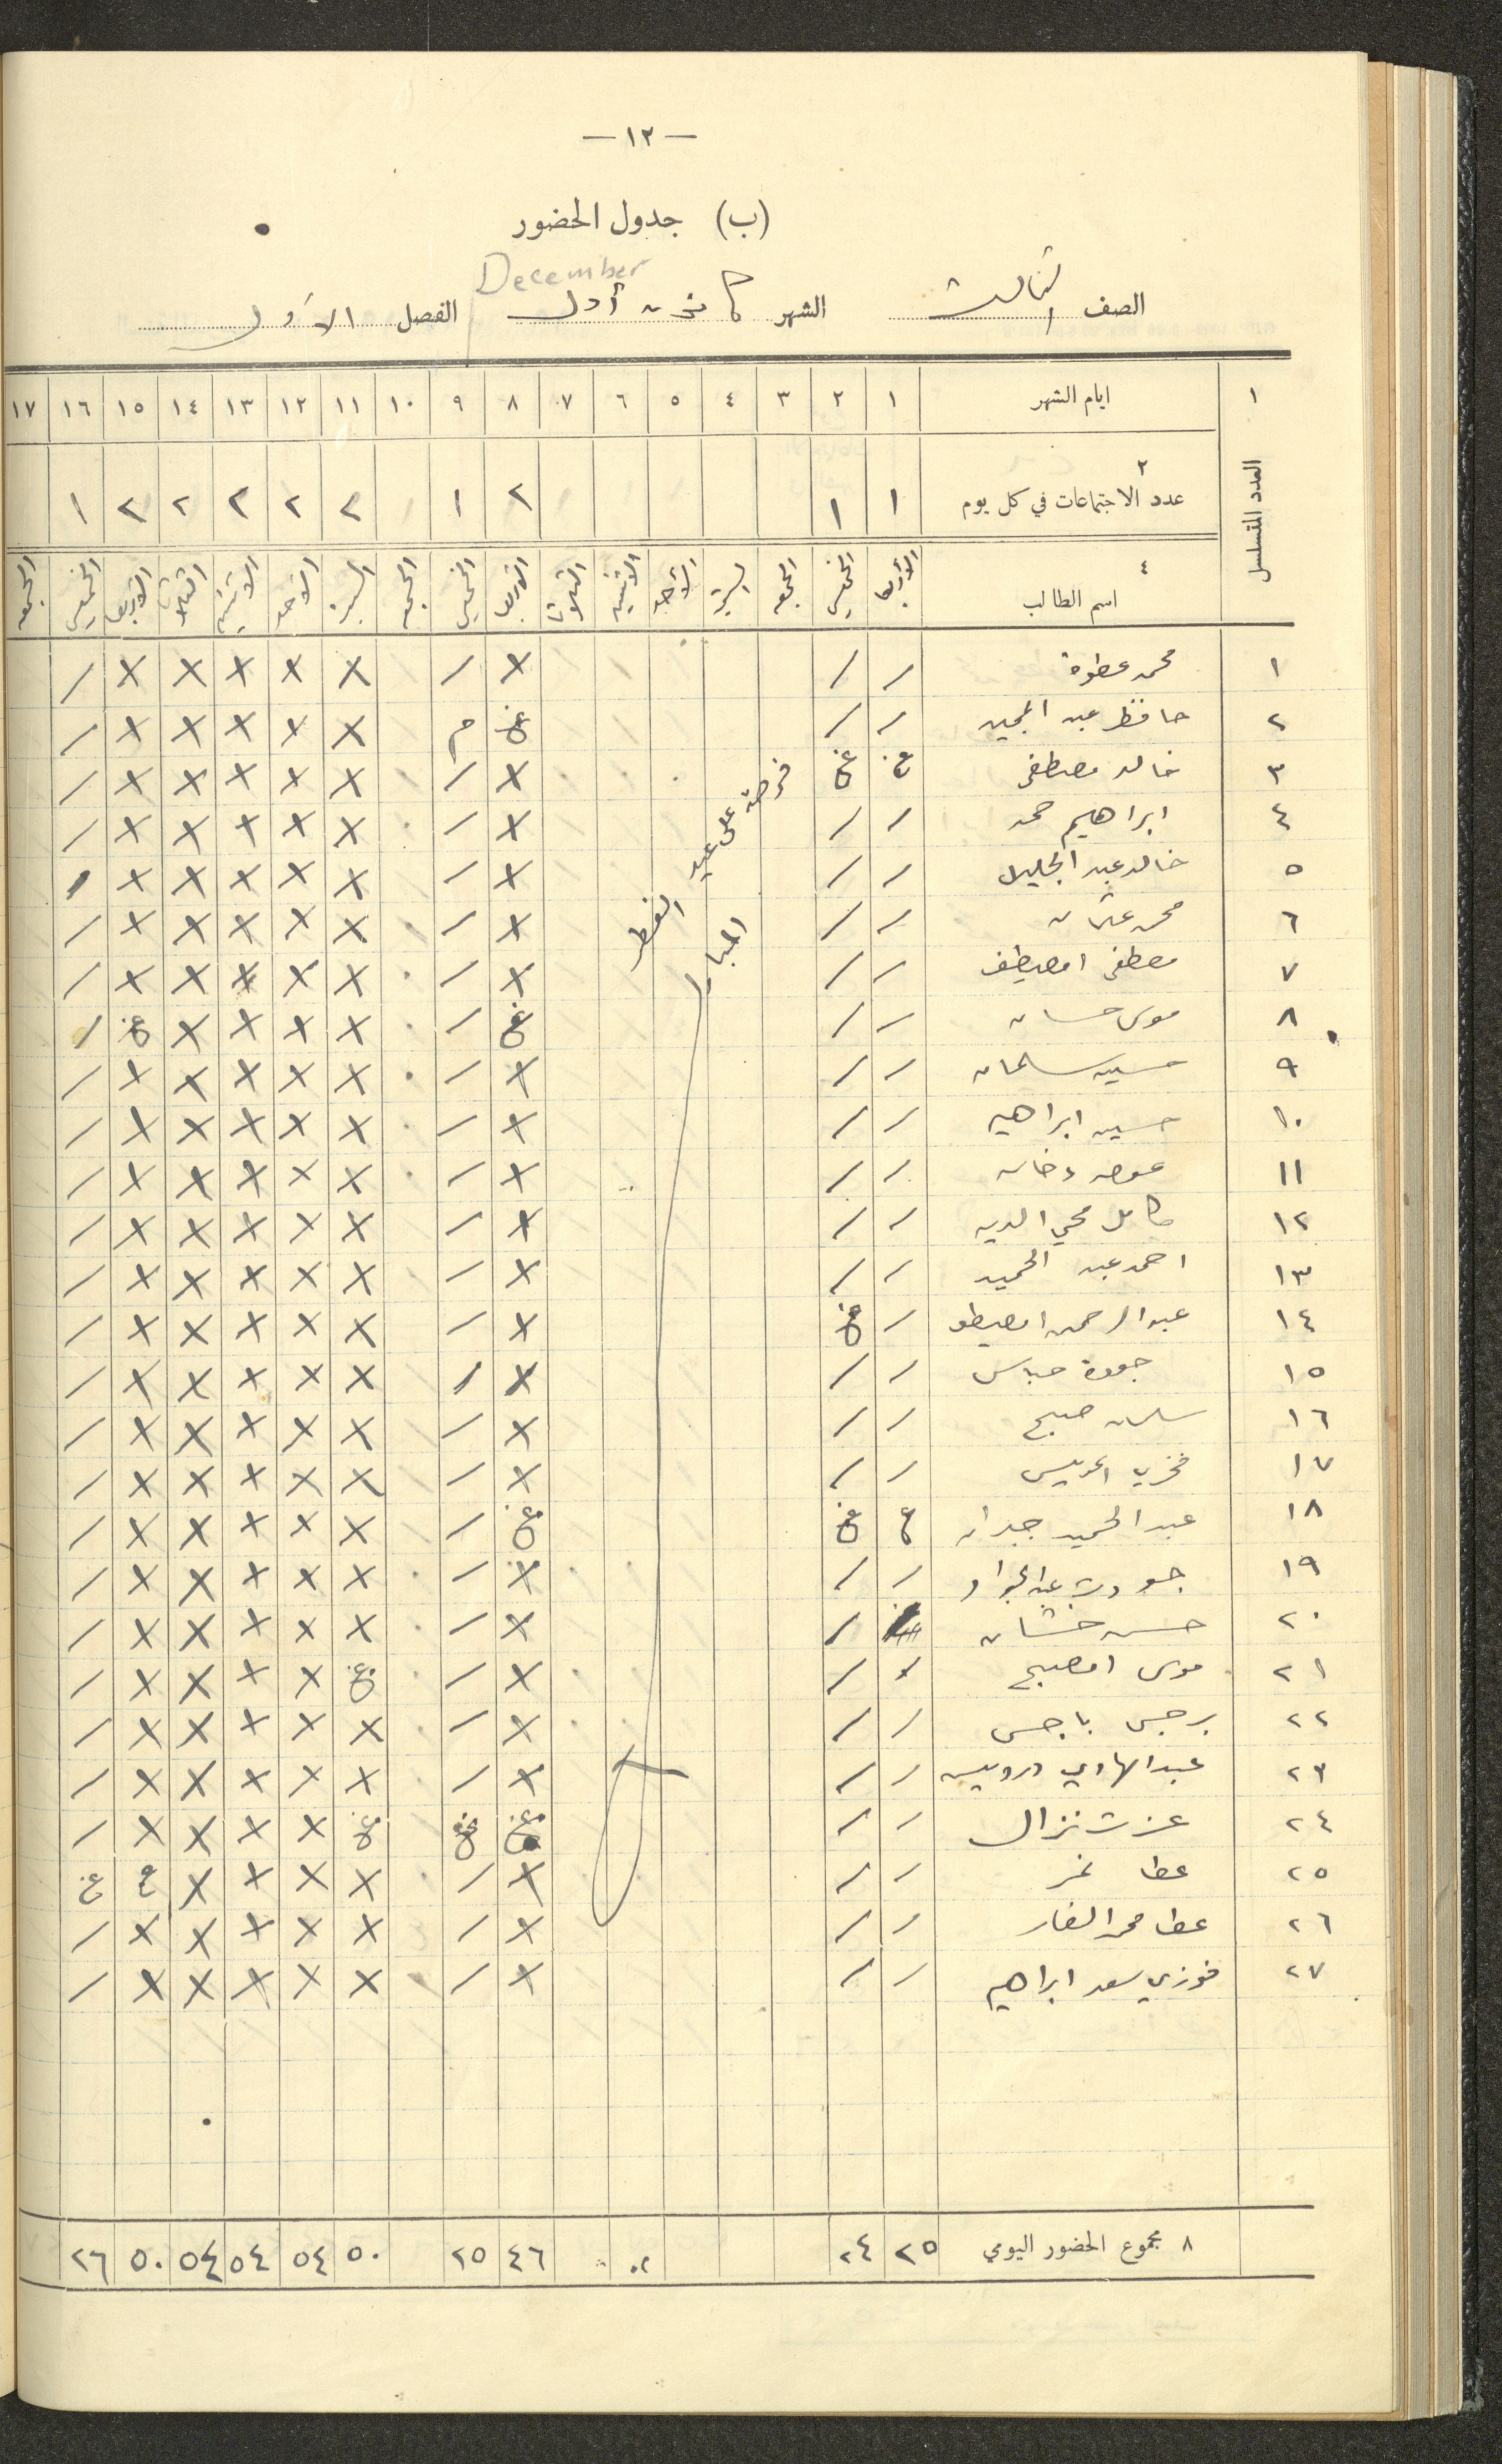 — ١٢ —
(ب) جدول الحضور
December
الصف الثالث الشهر كانون أول الفصل الأول
١ ايام الشهر ١ ٢ ٣ ٤ ٥ ٦ ٧ ٨ ٩ ١٠ ١١ ١٢ ١٣ ١٤ ١٥ ١٦ ١٧
العدد المتسلسل
٢ عدد الاجتماعات في كل يوم ١ ١ ٢ ١ ٢ ٢ ٢ ٢ ٢ ١
٤ اسم الطالب الأربعا الخميس الجمعه السبت الأحد الاثنين الثلاثا الاربعا الخميس الجمعه السبت الاحد الاثنين الثلاثا الاربعا الخميس الجمعه
١ محمد عطوة / / X / X X X X X /
٢ حافظ عبد المجيد / / غ م X X X X X /
٣ خالد مصطفى غ غ X / X X X X X /
٤ ابراهيم حمد / / X / X X X X X /
٥ خالد عبد الجليل / / X / X X X X X /
٦ محمد عثمان / / X / X X X X X /
٧ مصطفى امصيطف / / X / X X X X X /
٨ موسى حسان / / غ / X X X X غ /
٩ حسين سلمان / / X / X X X X X /
١٠ حسين ابراهيم / / X / X X X X X /
١١ عوض دخان / / X / X X X X X /
١٢ كامل محي الدين / / X / X X X X X /
١٣ احمد عبد الحميد / / X / X X X X X /
١٤ عبد الرحمن امصيطف / غ X / X X X X X /
١٥ جودة عباس / / X / X X X X X /
١٦ سلمان صبيح / / X / X X X X X /
١٧ فخري / / X / X X X X X /
١٨ عبد الحميد جبران غ غ غ / X X X X X /
١٩ جودت عبد الجواد / / X / X X X X X /
٢٠ حسن خشان / X / X X X X X /
٢١ موسى امصبح / / X / غ X X X X /
٢٢ برجس باجس / / X / X X X X X /
٢٣ عبد الهادي درويش / / X / X X X X X /
٢٤ عزت نزال / / غ غ غ X X X X /
٢٥ عطا نمر / / X / X X X X غ غ
٢٦ عطا محمد الفار / / X / X X X X X /
٢٧ فوزي سعد ابراهيم / / X / X X X X X /
فرصة على عيد الفطر
المبارك
٨ مجموع الحضور اليومي ٢٥ ٢٤ ٤٦ ٢٥ ٥٠ ٥٤ ٥٤ ٥٤ ٥٠ ٢٦